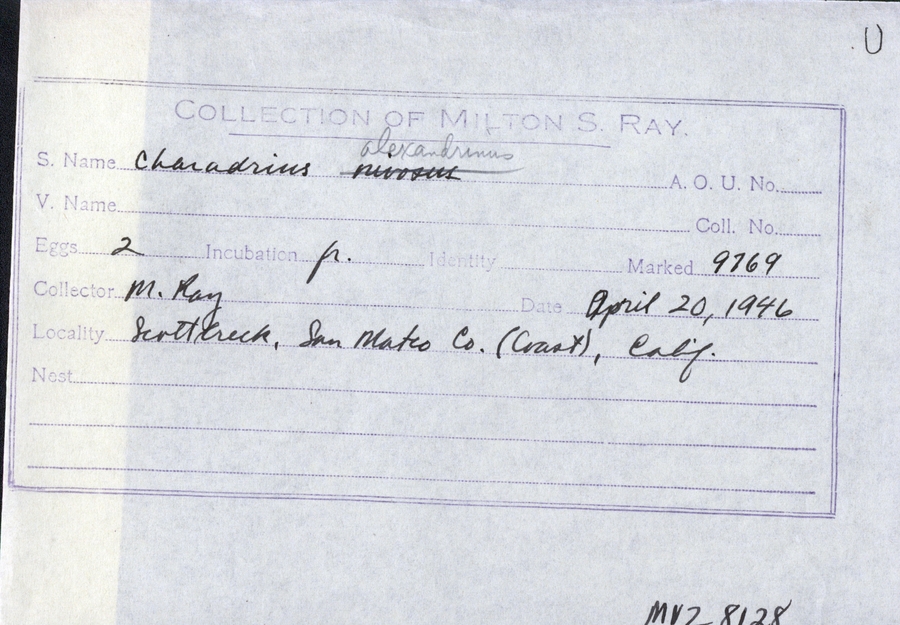 U
COLLECTION OF MILTON S. RAY.
alexandrinus
S. Name Charadrius nivosus A. O. U. No.
V. Name Coll. No.
Eggs 2 Incubation fr. Identity Marked 9769
Collector M. Ray Date April 20, 1946
Locality Scott Creek, San Mateo Co. (Coast), Calif.
Nest
MVZ 8128